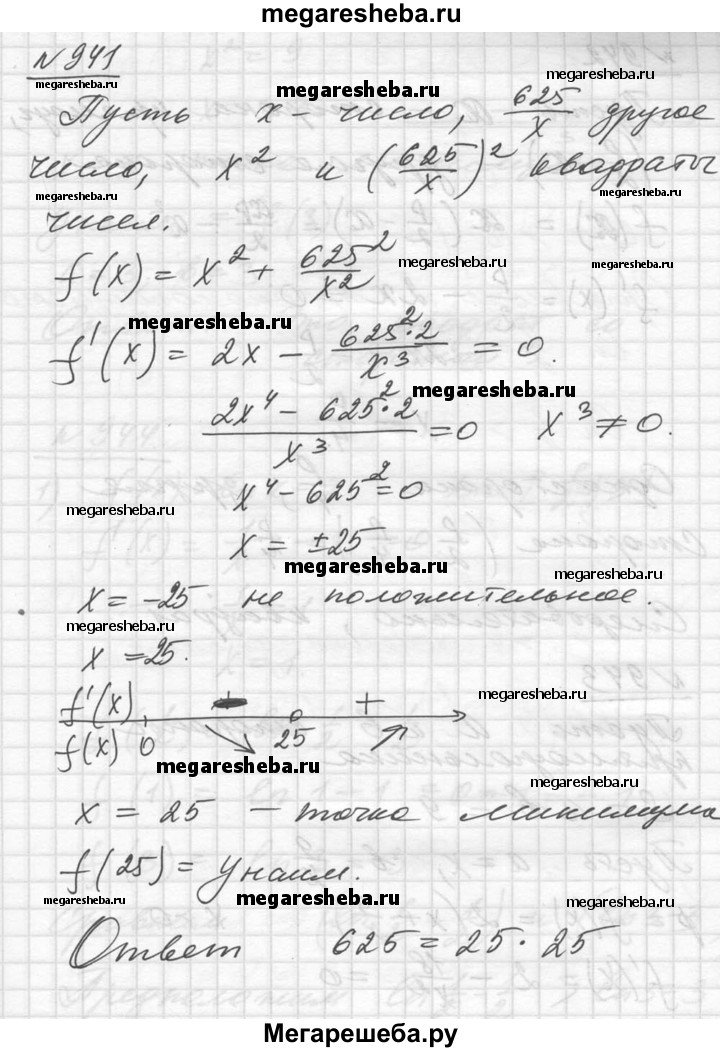 megaresheba.ru
№ 941
megaresheba.ru
megaresheba.ru
megaresheba.ru
Пусть x - число, 625/x другое
число, x² и (625/x)² квадраты
megaresheba.ru
megaresheba.ru
чисел.
f(x) = x² + 625²/x²
megaresheba.ru
megaresheba.ru
megaresheba.ru
f'(x) = 2x - 625²·2/x³ = 0.
megaresheba.ru
(2x⁴ - 625²·2)/x³ = 0 x³ ≠ 0.
x⁴ - 625² = 0
megaresheba.ru
x = ±25
megaresheba.ru
megaresheba.ru
x = -25 не положительное.
megaresheba.ru
x = 25.
f'(x) - +
megaresheba.ru
f(x) 0 25
megaresheba.ru
megaresheba.ru
x = 25 - точка минимума
f(25) = y наим.
megaresheba.ru
megaresheba.ru
megaresheba.ru
Ответ 625 = 25 · 25
Мегарешеба.ру